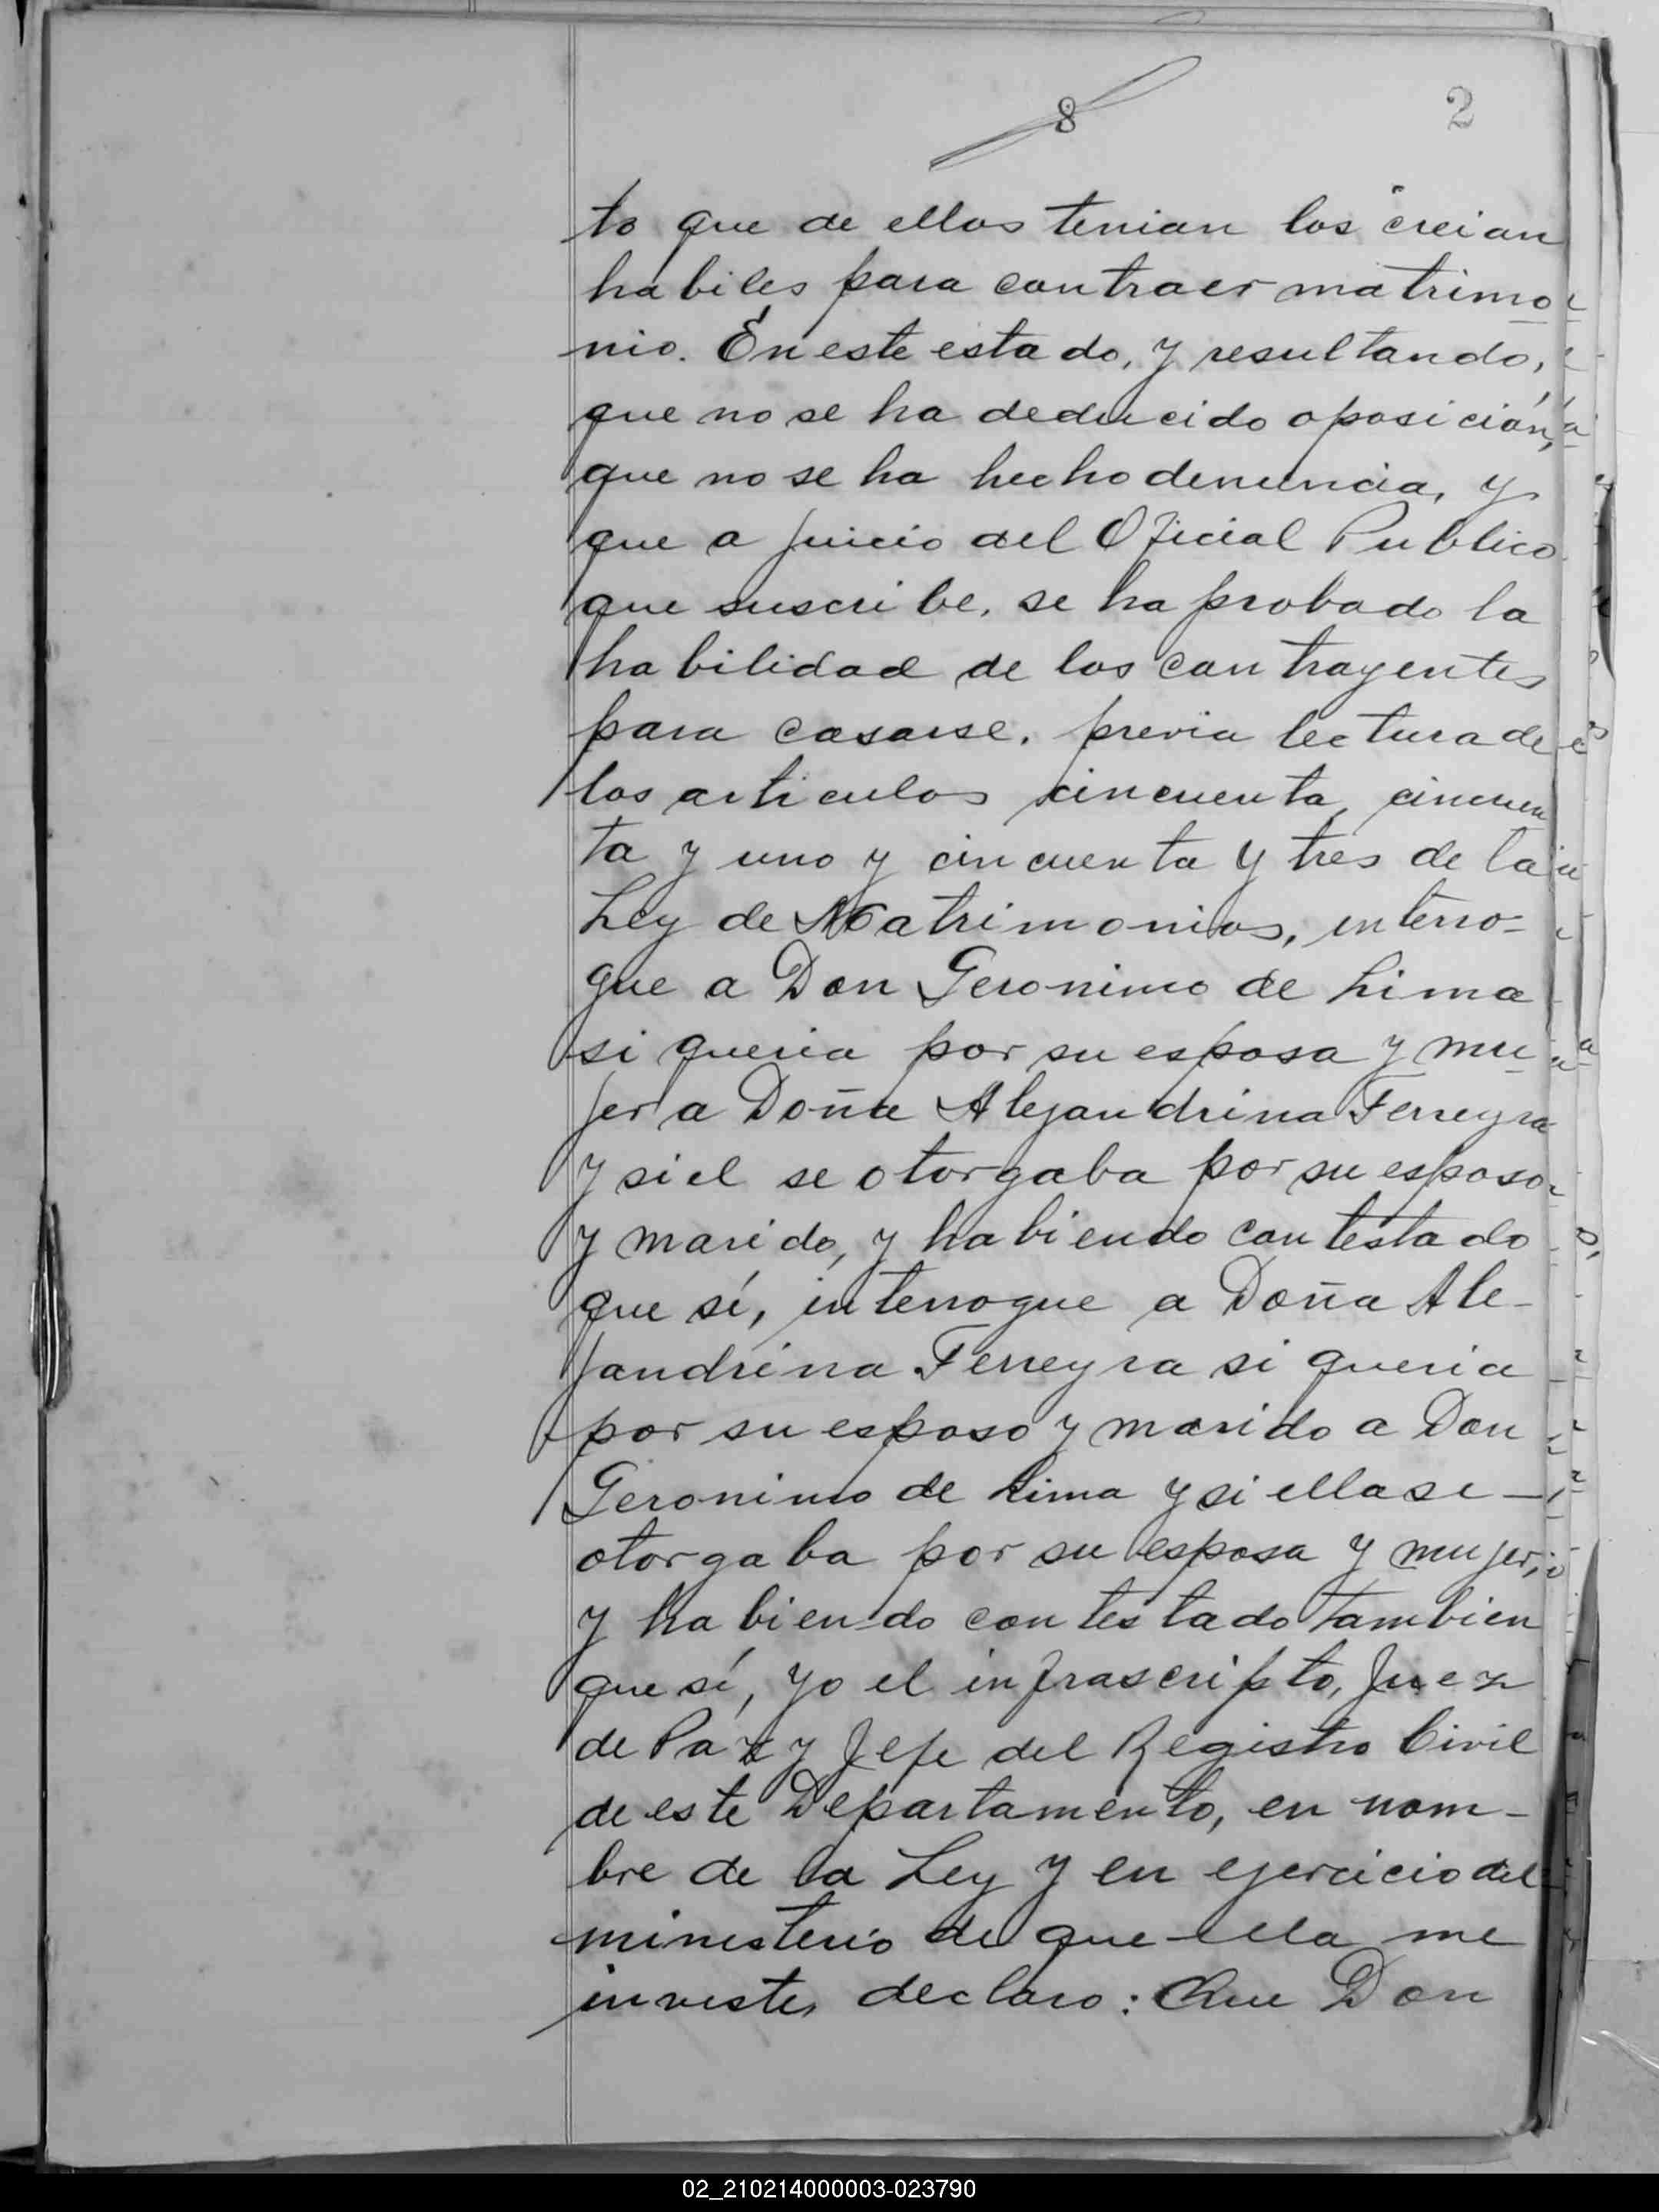 8
2
to que de ellos tenian los creian
habiles para contraer matrimo
nio. En este estado, y resultando,
que no se ha deducido oposición,
que no se ha hecho denuncia, y
que a juicio del Oficial Publico
que suscribe, se ha probado la
habilidad de los contrayentes
para casarse, previa lectura de
los articulos cincuenta, cincuen
ta y uno y cincuenta y tres de la
Ley de Matrimonios, interro-
gue a Don Geronimo de Lima
si queria por su esposa y mu
jer a Doña Alejandrina Ferreyra
y si el se otorgaba por su esposo
y marido, y habiendo contestado
que sí, interrogue a Doña Ale-
jandrina Ferreyra si queria
por su esposo y marido a Don
Geronimo de Lima y si ella se
otorgaba por su esposa y mujer,
y habiendo contestado tambien
que sí, yo el infrascripto, Juez
de Paz y Jefe del Registro Civil
de este Departamento, en nom-
bre de la Ley y en ejercicio del
ministerio de que ella me
inviste, declaro: Que Don
02_210214000003-023790